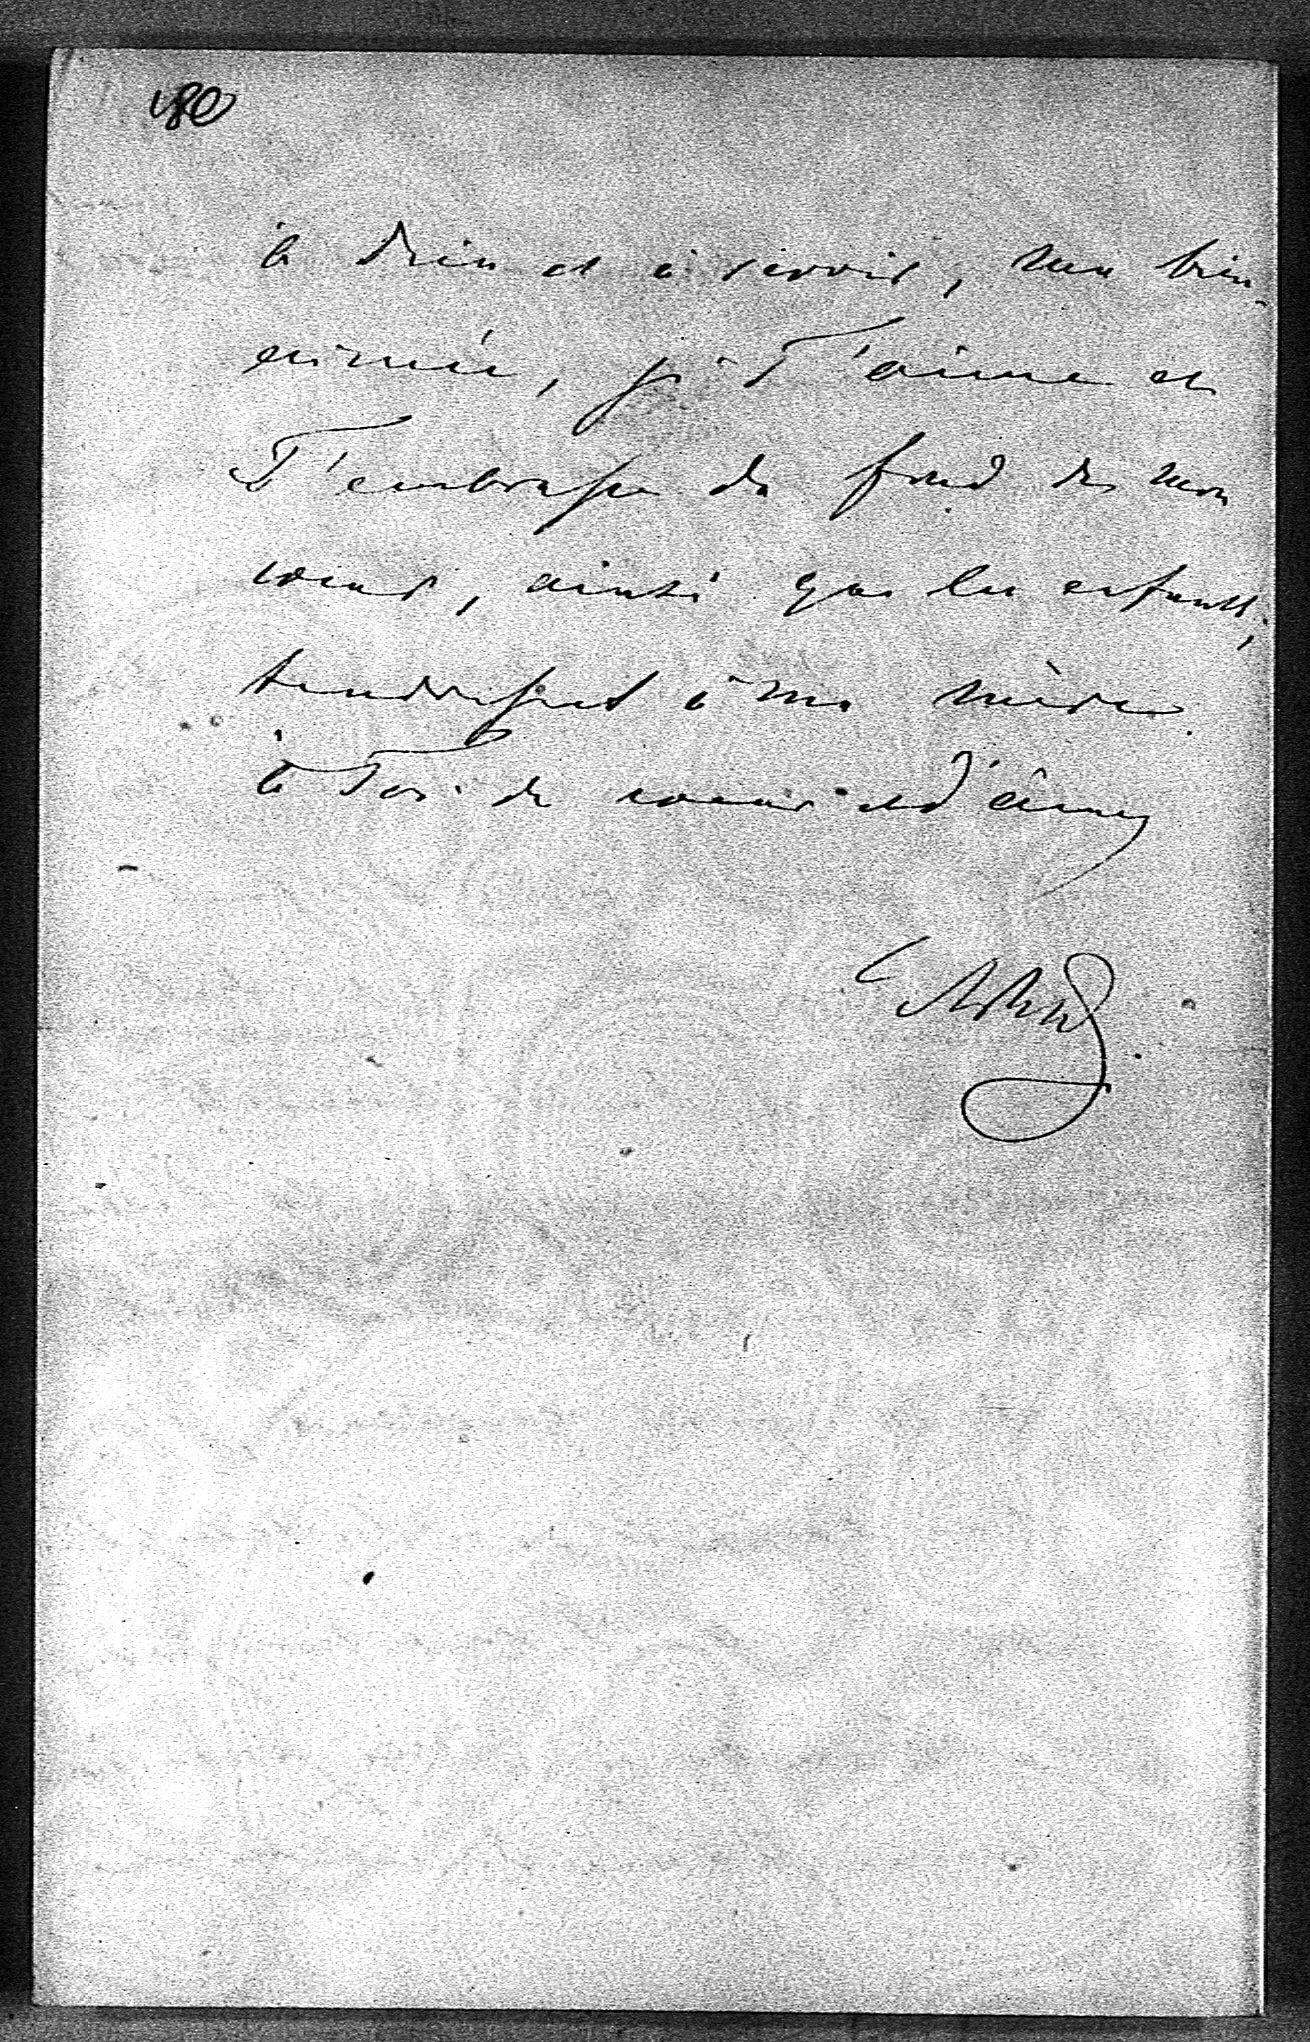 180
à Dieu et à revoir, ma bien-
aimée, je T'aime et
T'embrasse du fond de mon
coeur, ainsi que les enfants;
tendresses à ma mère.
à Toi de coeur et d'âme,